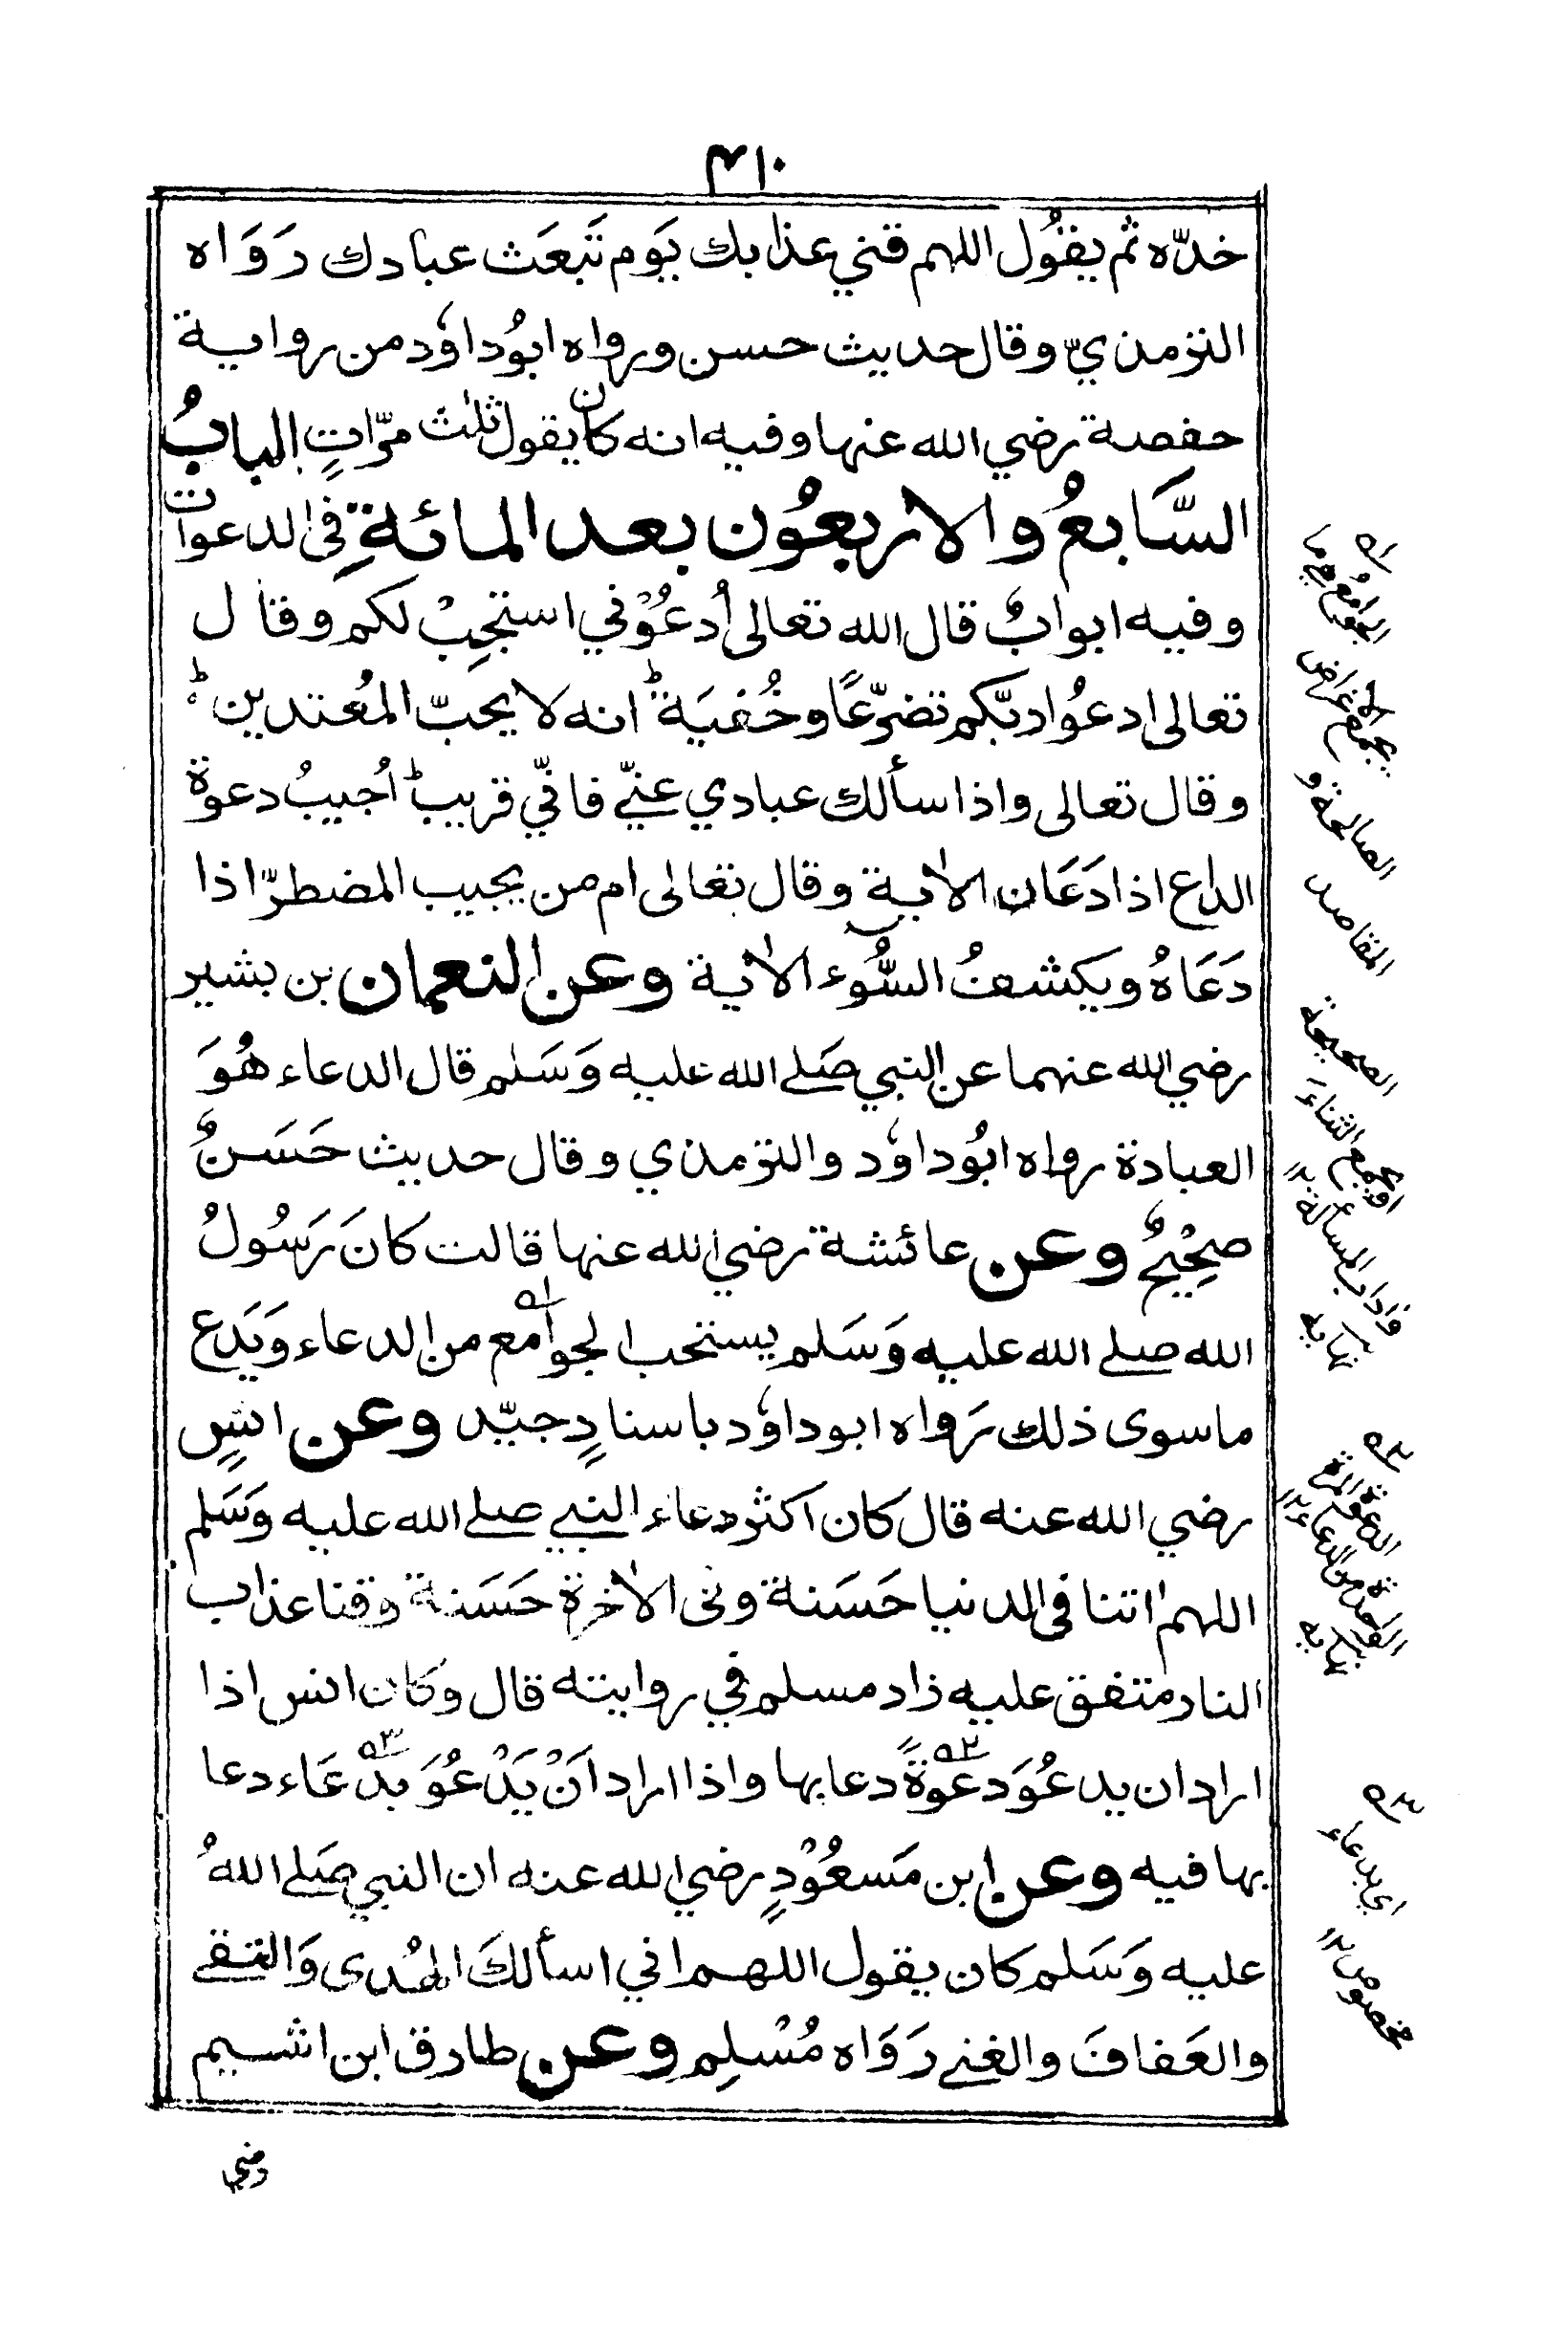 ٣١٠
خدّه ثم يقُول اللهم قني عذابك يَوم تَبعَث عبادك رَوَاه
الترمذيّ وقال حديث حسن ورواه ابوُداوٗد من رواية
حفصة رضي الله عنها وفيه انه كان يقول ثلٰث مرّاتٍ البابُ
السَّابعُ والاربعُون بعد المائةِ في الدعوات
وفيه ابوابٌ قال الله تعالى اُدعُوْني استجِبْ لكم وقال
تعالى ادعُوا ربّكم تضرّعًا وخُفيَة ؕ انه لا يحبّ المُعتدين ؕ
وقال تعالى واذا سألك عبادي عنّي فانّي قريب ؕ اُجيبُ دعوة
الداع اذا دَعَان الاٰية وقال تعالى ام من يجيب المضطرّ اذا
دَعَاهُ ويكشفُ السُّوء الاٰية وعن النعمان بن بشير
رضي الله عنهما عن النبي صَلے الله عليه وَسَلم قال الدعاء هُوَ
العبادة رواه ابُوداوٗد والترمذي وقال حديث حَسَنٌ
صحِيْحٌ وعن عائشة رضي الله عنها قالت كانَ رَسُولُ
الله صلے الله عليه وَسَلم يستحب الجوامع من الدعاء وَيَدع
ما سوى ذلك رَواه ابو داوٗد باسنادٍ جيّد وعن انسٍ
رضي الله عنه قال كان اكثر دعاء النبي صلے الله عليه وَسَلم
اللهم اٰتنا في الدنيا حَسَنة وفي الاٰخرة حَسَنة وقنا عذاب
النار متفق عليه زاد مسلم في روايته قال وكان انس اذا
اراد ان يدعُوَ دعْوةً دعا بها واذا اراد اَنْ يَدْعُوَ بدُعَاء دعا
بها فيه وعن ابن مَسعُوْدٍ رضي الله عنه ان النبي صَلے اللهُ
عليه وَسَلم كان يقول اللهم اني اسألكَ الهُدى وَالتقے
والعَفافَ والغنے رَوَاه مُسْلِم وعن طارق ابن اشيم
رضي
ا؎
الجوامع هي ما
يجمع الاغراض
الصالحة و
المقاصد
الصحيحة
او يجمع الثناء
واداب المسألة ١٢
نهايه
٢؎
الدعوة المرة
الواحدة من الدعاء ١٢
نهايه
٣؎
اي بدعاء
مخصوص ١٢